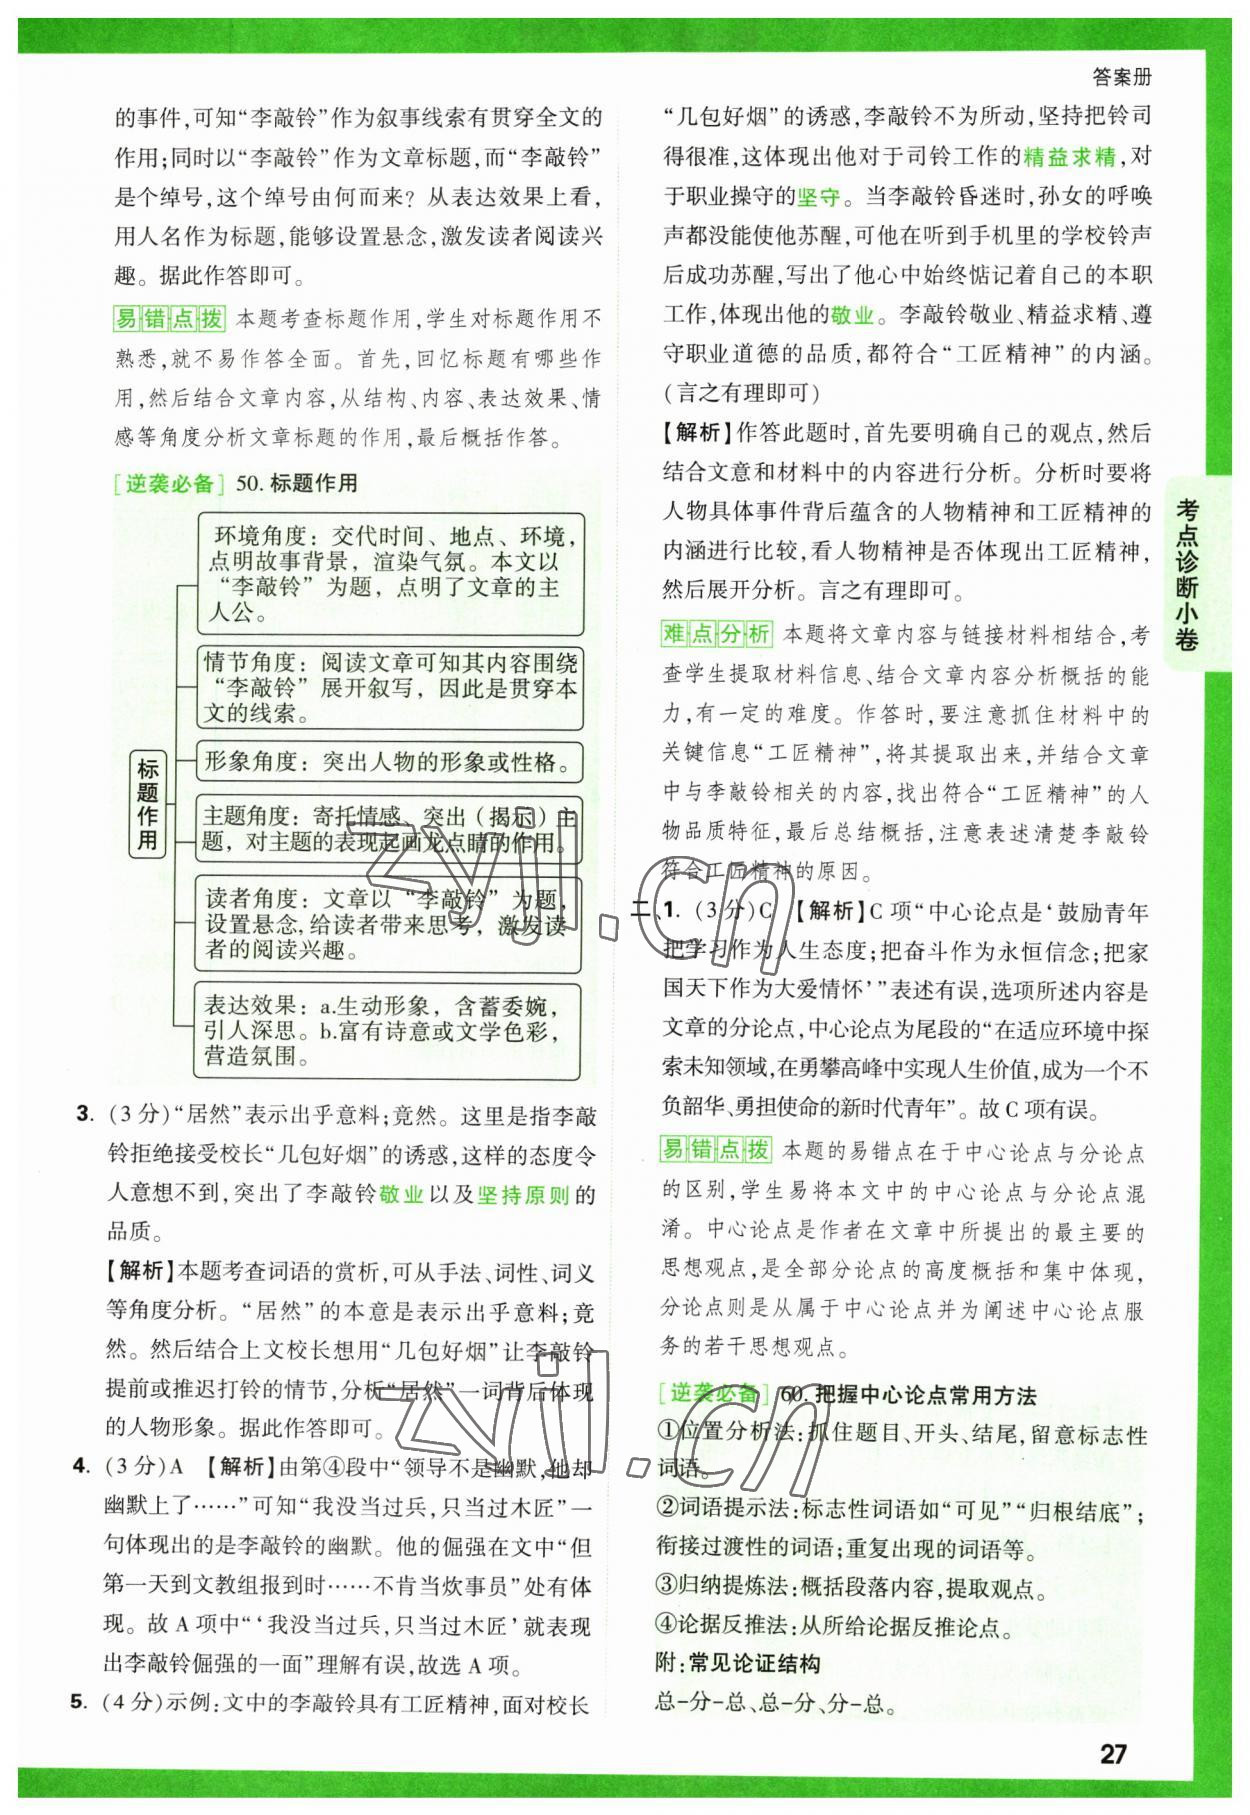 答案册
的事件,可知“李敲铃”作为叙事线索有贯穿全文的
作用;同时以“李敲铃”作为文章标题,而“李敲铃”
是个绰号,这个绰号由何而来？从表达效果上看,
用人名作为标题,能够设置悬念,激发读者阅读兴
趣。据此作答即可。
易错点拨 本题考查标题作用,学生对标题作用不
熟悉,就不易作答全面。首先,回忆标题有哪些作
用,然后结合文章内容,从结构、内容、表达效果、情
感等角度分析文章标题的作用,最后概括作答。
[逆袭必备] 50. 标题作用
标题作用
环境角度：交代时间、地点、环境，
点明故事背景，渲染气氛。本文以
“李敲铃”为题，点明了文章的主
人公。
情节角度：阅读文章可知其内容围绕
“李敲铃”展开叙写，因此是贯穿本
文的线索。
形象角度：突出人物的形象或性格。
主题角度：寄托情感、突出（揭示）主
题，对主题的表现起画龙点睛的作用。
读者角度：文章以“李敲铃”为题，
设置悬念,给读者带来思考，激发读
者的阅读兴趣。
表达效果：a.生动形象，含蓄委婉，
引人深思。b.富有诗意或文学色彩，
营造氛围。
3. (3分)“居然”表示出乎意料;竟然。这里是指李敲
铃拒绝接受校长“几包好烟”的诱惑,这样的态度令
人意想不到,突出了李敲铃敬业以及坚持原则的
品质。
【解析】本题考查词语的赏析,可从手法、词性、词义
等角度分析。“居然”的本意是表示出乎意料;竟
然。然后结合上文校长想用“几包好烟”让李敲铃
提前或推迟打铃的情节,分析“居然”一词背后体现
的人物形象。据此作答即可。
4. (3分)A 【解析】由第④段中“领导不是幽默,他却
幽默上了……”可知“我没当过兵,只当过木匠”一
句体现出的是李敲铃的幽默。他的倔强在文中“但
第一天到文教组报到时……不肯当炊事员”处有体
现。故A项中“‘我没当过兵,只当过木匠’就表现
出李敲铃倔强的一面”理解有误,故选A项。
5. (4分)示例:文中的李敲铃具有工匠精神,面对校长
“几包好烟”的诱惑,李敲铃不为所动,坚持把铃司
得很准,这体现出他对于司铃工作的精益求精,对
于职业操守的坚守。当李敲铃昏迷时,孙女的呼唤
声都没能使他苏醒,可他在听到手机里的学校铃声
后成功苏醒,写出了他心中始终惦记着自己的本职
工作,体现出他的敬业。李敲铃敬业、精益求精、遵
守职业道德的品质,都符合“工匠精神”的内涵。
(言之有理即可)
【解析】作答此题时,首先要明确自己的观点,然后
结合文意和材料中的内容进行分析。分析时要将
人物具体事件背后蕴含的人物精神和工匠精神的
内涵进行比较,看人物精神是否体现出工匠精神,
然后展开分析。言之有理即可。
难点分析 本题将文章内容与链接材料相结合,考
查学生提取材料信息、结合文章内容分析概括的能
力,有一定的难度。作答时,要注意抓住材料中的
关键信息“工匠精神”,将其提取出来,并结合文章
中与李敲铃相关的内容,找出符合“工匠精神”的人
物品质特征,最后总结概括,注意表述清楚李敲铃
符合工匠精神的原因。
二、1. (3分)C 【解析】C项“中心论点是‘鼓励青年
把学习作为人生态度;把奋斗作为永恒信念;把家
国天下作为大爱情怀’”表述有误,选项所述内容是
文章的分论点,中心论点为尾段的“在适应环境中探
索未知领域,在勇攀高峰中实现人生价值,成为一个不
负韶华、勇担使命的新时代青年”。故C项有误。
易错点拨 本题的易错点在于中心论点与分论点
的区别,学生易将本文中的中心论点与分论点混
淆。中心论点是作者在文章中所提出的最主要的
思想观点,是全部分论点的高度概括和集中体现,
分论点则是从属于中心论点并为阐述中心论点服
务的若干思想观点。
[逆袭必备] 60. 把握中心论点常用方法
①位置分析法:抓住题目、开头、结尾,留意标志性
词语。
②词语提示法:标志性词语如“可见”“归根结底”;
衔接过渡性的词语;重复出现的词语等。
③归纳提炼法:概括段落内容,提取观点。
④论据反推法:从所给论据反推论点。
附:常见论证结构
总-分-总、总-分、分-总。
考点诊断小卷
27
zyjl.cn
zyjl.cn